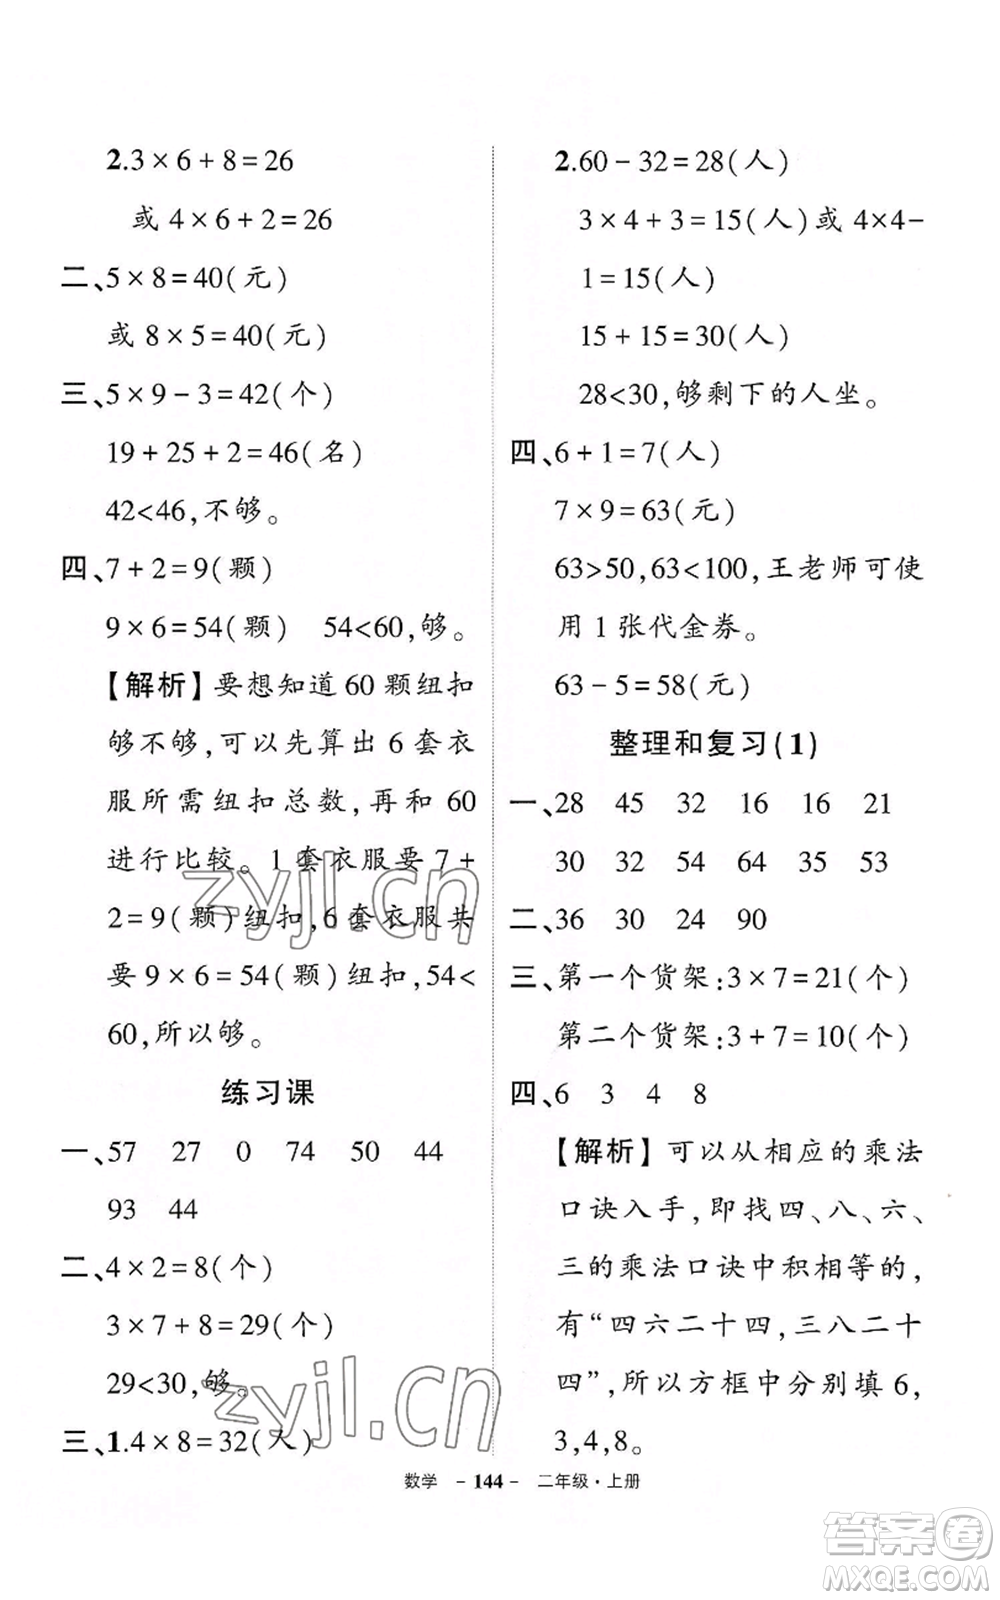 2.3×6+8=26
或 4×6+2=26
二、5×8=40(元)
或 8×5=40(元)
三、5×9-3=42(个)
19+25+2=46(名)
42<46,不够。
四、7+2=9(颗)
9×6=54(颗) 54<60,够。
【解析】要想知道 60 颗纽扣
够不够,可以先算出 6 套衣
服所需纽扣总数,再和 60
进行比较。1 套衣服要 7+
2=9(颗)纽扣,6 套衣服共
要 9×6=54(颗)纽扣,54<
60,所以够。
练习课
一、57 27 0 74 50 44
93 44
二、4×2=8(个)
3×7+8=29(个)
29<30,够。
三、1.4×8=32(人)
2.60-32=28(人)
3×4+3=15(人)或 4×4-
1=15(人)
15+15=30(人)
28<30,够剩下的人坐。
四、6+1=7(人)
7×9=63(元)
63>50,63<100,王老师可使
用 1 张代金券。
63-5=58(元)
整理和复习(1)
一、28 45 32 16 16 21
30 32 54 64 35 53
二、36 30 24 90
三、第一个货架:3×7=21(个)
第二个货架:3+7=10(个)
四、6 3 4 8
【解析】可以从相应的乘法
口诀入手,即找四、八、六、
三的乘法口诀中积相等的,
有“四六二十四,三八二十
四”,所以方框中分别填 6,
3,4,8。
数学 -144- 二年级·上册
zyjl.cn
zyjl.cn
答案圈
MXQE.COM